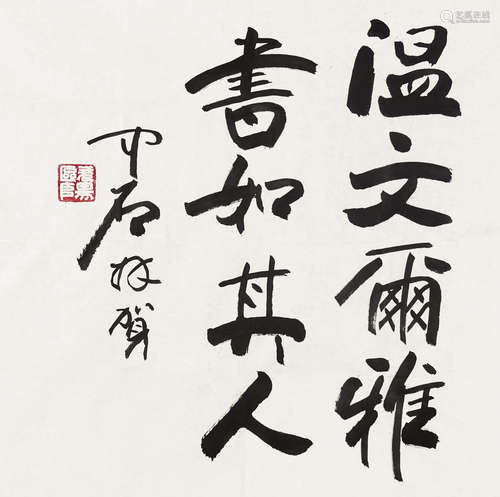 溫文爾雅
書如其人
中石拜賀